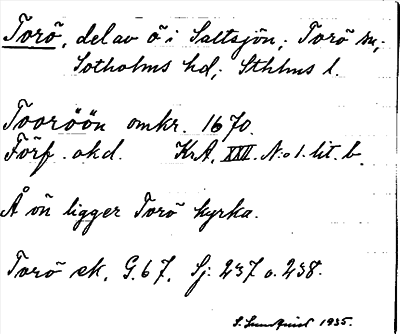 Torö, del av ö i Saltsjön; Torö sn;
Sotholms hd; Sthlms l.
Tooröön omkr. 1670.
Förf. okd. KrA, XXII. N:o 1. lit. b.
Å ön ligger Torö kyrka.
Torö sk. G. 67. Sj. 237 o. 238.
S. Lundquist 1935.